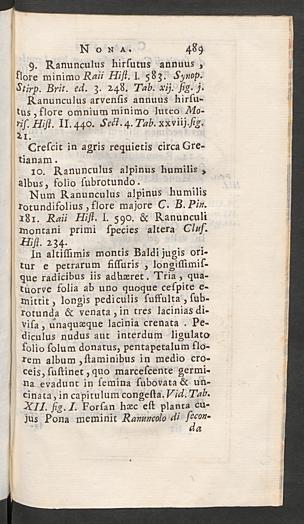 NONA. 489
9. Ranunculus hirsutus annuus,
flore minimo Raii Hist. l. 583. Synop.
Stirp. Brit. ed. 3. 248. Tab. xij. fig. j.
Ranunculus arvensis annuus hirsu-
tus, flore omnium minimo luteo Mo-
ris. Hist. II. 440. Sect. 4. Tab. xxviij. fig.
21.
Crescit in agris requietis circa Gre-
tianam.
10. Ranunculus alpinus humilis,
albus, folio subrotundo.
Num Ranunculus alpinus humilis
rotundifolius, flore majore C. B. Pin.
181. Raii Hist. l. 590. & Ranunculi
montani primi species altera Cluf.
Hist. 234.
In altissimis montis Baldi jugis ori-
tur e petrarum fissuris, longissimis-
que radicibus iis adhæret. Tria, qua-
tuorve folia ab uno quoque cespite e-
mittit, longis pediculis suffulta, sub-
rotunda & venata, in tres lacinias di-
visa, unaquæque lacinia crenata. Pe-
diculus nudus aut interdum ligulato
folio solum donatus, pentapetalum flo-
rem album, staminibus in medio cro-
ceis, sustinet, quo marcescente germi-
na evadunt in semina subovata & un-
cinata, in capitulum congesta. Vid. Tab.
XII. fig. I. Forsan hæc est planta cu-
jus Pona meminit Ranuncolo di secon-
da